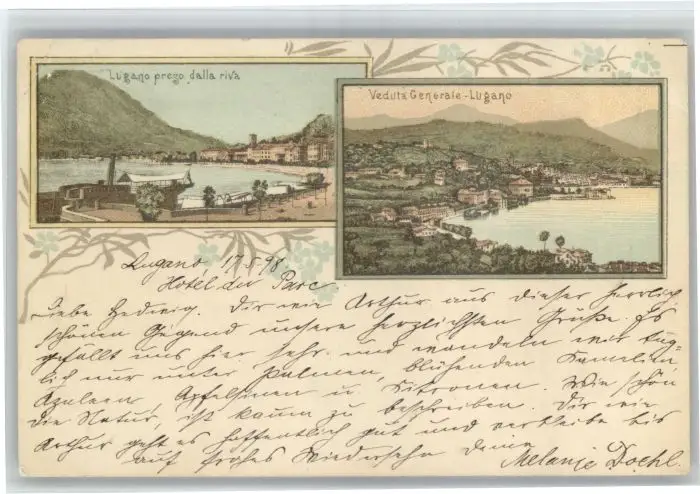 Lugano prezo dalla riva
Veduta Generale - Lugano
Lugano 17.5.98
Hôtel du Parc
Liebe Hedwig. Dir wie Arthur aus dieser herrlich
schönen Gegend unsere herzlichsten Grüße. Es
gefällt uns hier sehr und wandeln wir täg-
lich nur unter Palmen, blühenden Kamelien,
Azaleen, Apfelsinen u. Zitronen. Wie schön
die Natur, ist kaum zu beschreiben. Dir wie
Arthur geht es hoffentlich gut und verbleibe bis
auf frohes Wiedersehn Deine
Melanie Doehl.